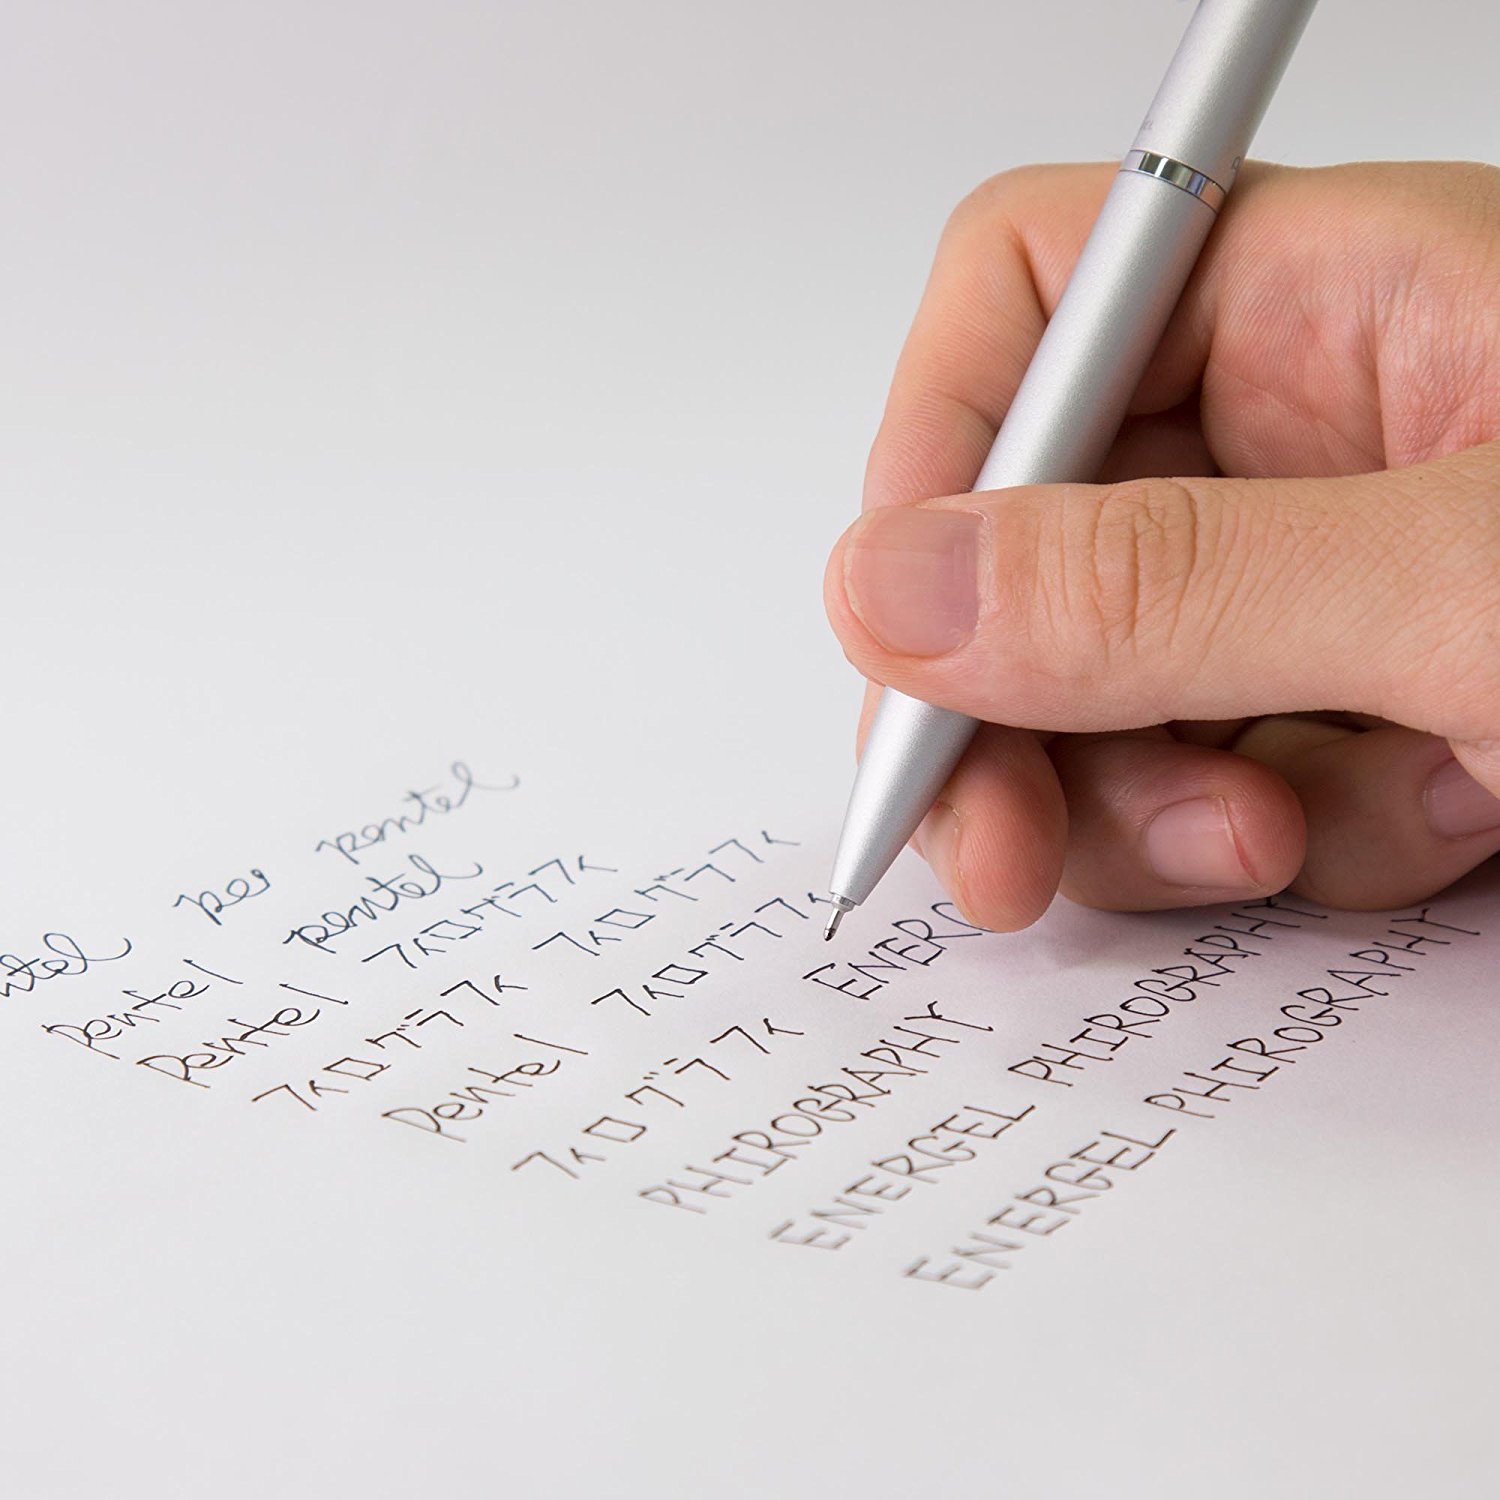 pentel
pentel pentel
Pentel フィログラフィ
フィログラフィ フィログラフィ
Pentel フィログラフィ
フィログラフィ ENERG
PHIROGRAPHY
ENERGEL PHIROGRAPHY
ENERGEL PHIROGRAPHY